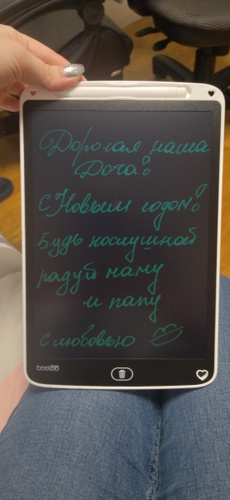 Дорогая наша
Доча!
С Новым годом!
Будь послушной
радуй маму
и папу
с любовью